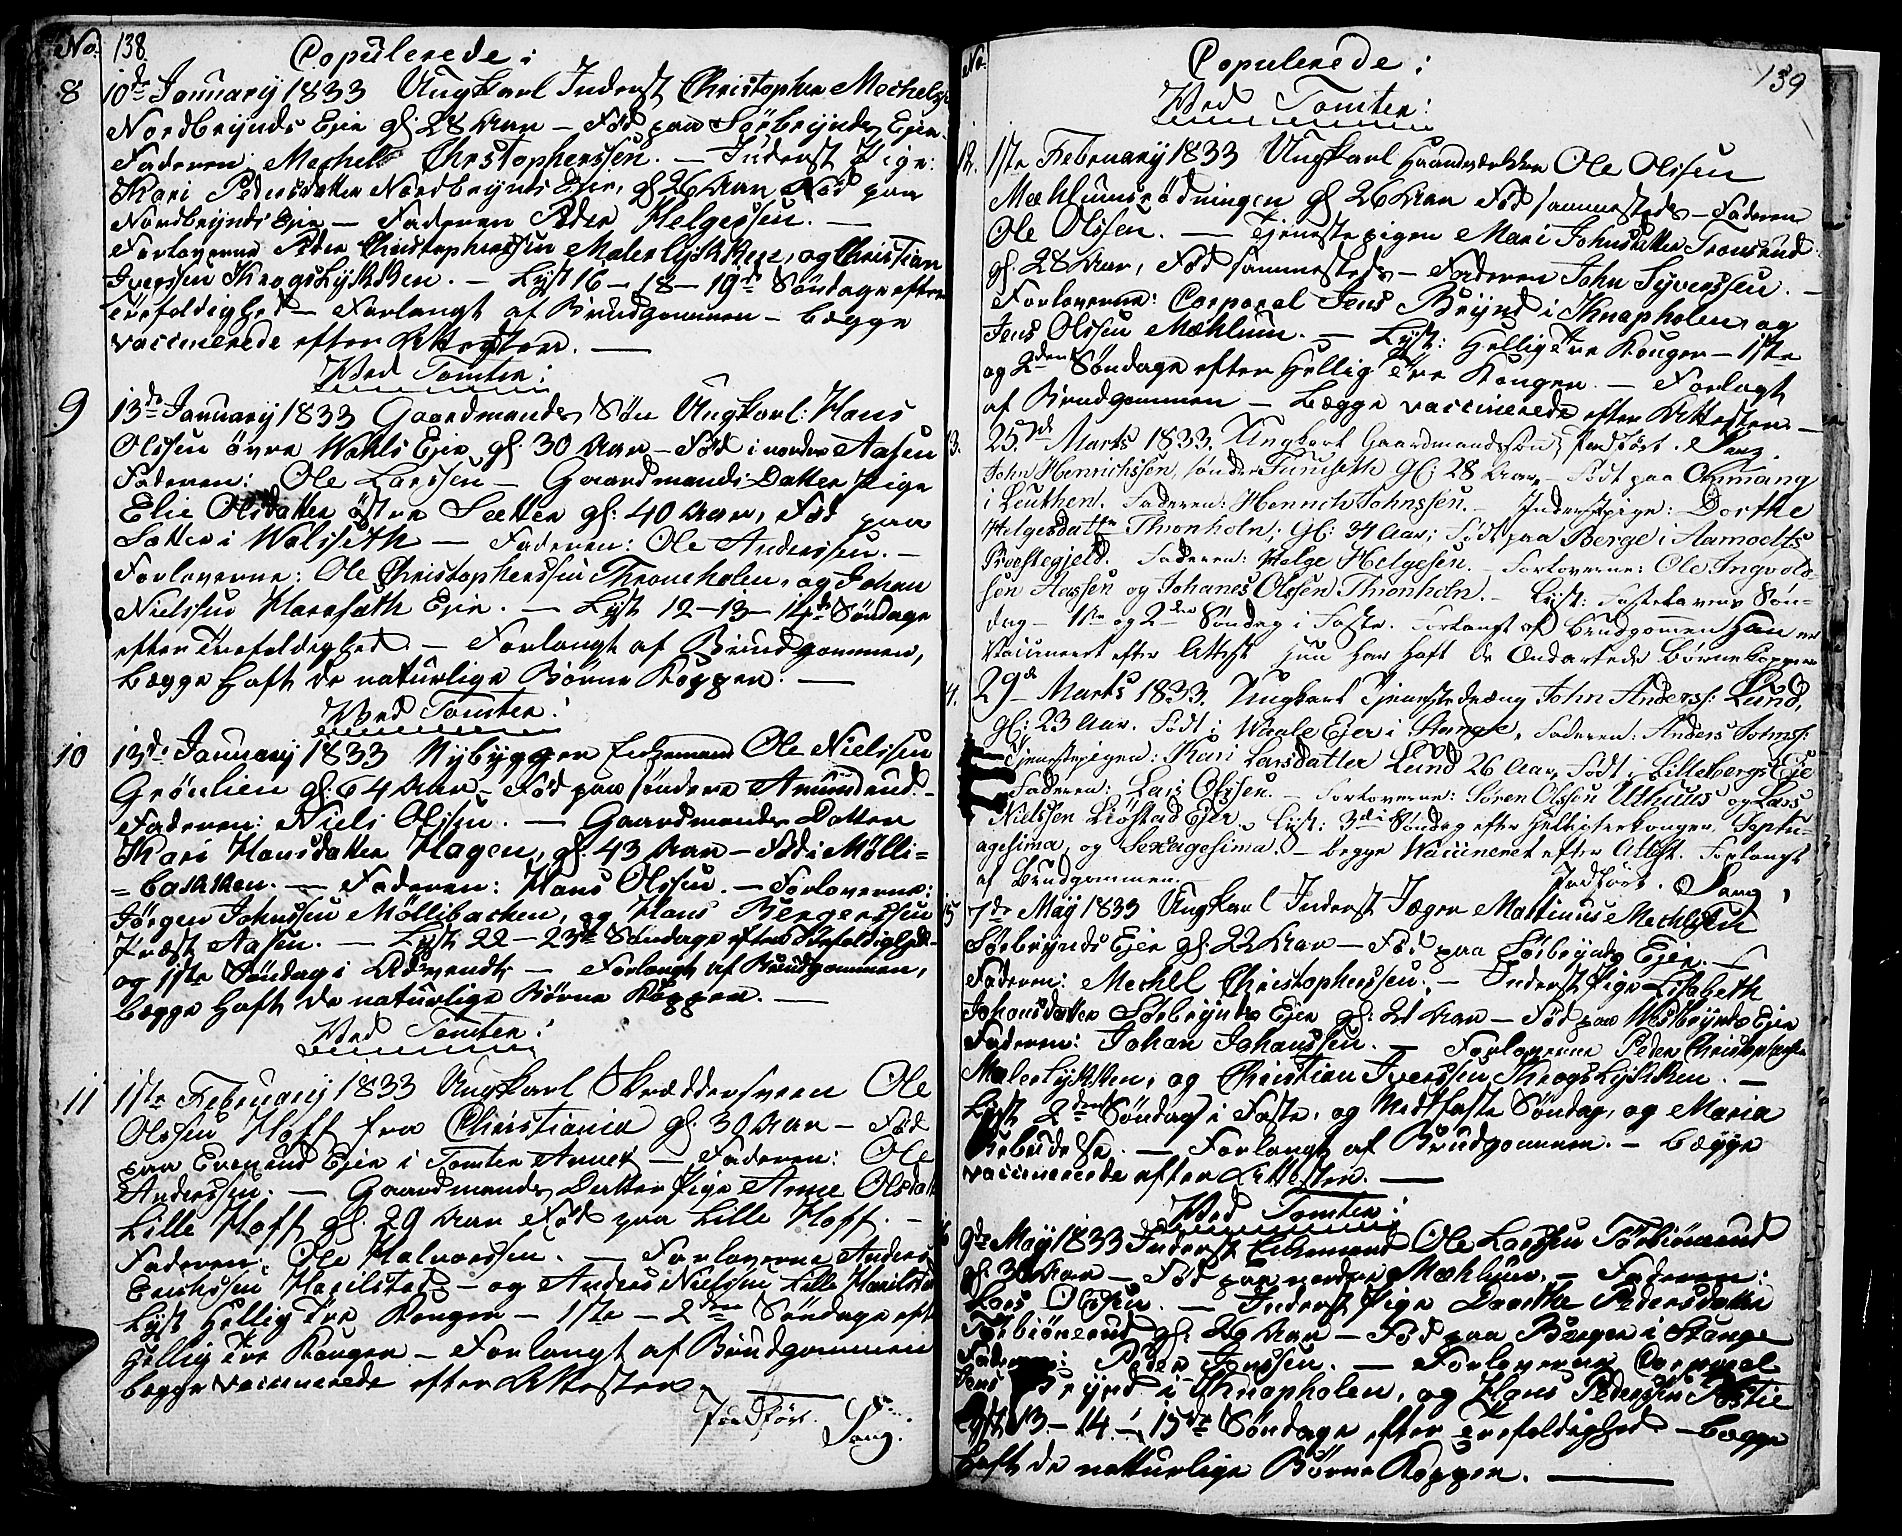 No. 138.
Copulerede:
8 10de January 1833 Ungkarl Inderst Christopher Mechels:
Nordbrynds Eje gl: 28 Aar – Fød paa Sørbrynds Eje.
Faderen: Mechel Christopherssen. – Inderst Pige:
Kari Pedersdatter Nordbrynds Eje, gl 26 Aar Fød paa
Nordbrynds Eje – Faderen Peder Helgessen. –
Forloverne Peder Christopherssen Malerlykken, og Christian
Iverssen Krogslykken. – Lyst 16 – 18 – 19de Søndage efter
Trefoldighed – Forlangt af Brudgommen – begge
vaccinerede efter Attester. –
Ved Tomter:
9 13de January 1833 Gaardmands Søn Ungkarl: Hans
Olssen øvre Wahls Eje gl: 30 Aar – Fød i nordre Aasen
Faderen: Ole Larssen – Gaardmands Datter Pige
Elie Olsdatter østre Sætter gl: 40 Aar, Fød paa
Sætter i Walsseth – Faderen: Ole Anderssen. –
Forloverne: Ole Christopherssen Throneholen, og Johan
Nielssen Haresæth Eje. – Lyst 12 – 13 – 14de Søndage
efter Trefoldighed – Forlangt af Brudgommen,
begge haft de naturlige Børne Kopper. –
Ved Tomter:
10 13de January 1833 Nybygger Enkemand Ole Nielssen
Grønlien gl: 64 Aar – Fød paa søndere Amundrud –
Faderen: Niels Olssen. – Gaardmands Datter
Kari Hansdatter Hagen, gl: 43 Aar – Fød i Mølli=
=bakken. – Faderen: Hans Olssen. – Forloverne:
Jørgen Johnssen Møllibacken, og Hans Bergerssen
Præst Aasen. – Lyst 22 – 23de Søndage efter Trefoldighed –
og 1ste Søndag i Advendt – Forlangt af Brudgommen,
begge haft de naturlige Børne Kopper. –
Ved Tomter:
11 1ste February 1833 Ungkarl Skræddersvenn Ole
Olssen Hoff fra Christiania gl: 30 Aar – Fød
paa Evenrud Eje i Tomter Annex – Faderen: Ole
Anderssen. – Gaardmands Datter Pige Anne Olsdatt
Lille Hoff gl: 29 Aar Fød paa Lille Hoff. –
Faderen: Ole Halvorssen. – Forloverne Anders
Erichssen Harilstad – og Anders Nielssen Lille Harilstad
Lyst Hellig Tre Konger – 1ste – 2den Søndage eft
Hellig Tre Konger – Forlangt af Brudgommen
begge vaccinerede efter Attester.
Indført. Sang.
No. 139
Copulerede:
Ved Tomter:
12. 1ste February 1833 Ungkarl Haandverker Ole Olssen
Mæhlumsrødningen gl 26 Aar Fød sammesteds – Faderen
Ole Olssen. – Tjenestepigen Mari Johnsdatter Tronsrud
gl: 28 Aar, Fød sammesteds – Faderen John Syverssen. –
Forloverne: Corporal Jens Brynd i Knapholen, og
Jens Olssen Mæhlum. – Lyst: Hellig Tre Konger – 1ste
og 2den Søndage efter Hellig Tre Konger – Forlagt
af Brudgommen – begge vaccinerede efter Attester –
13. 25de Marts 1833. Ungkarl Gaardmandssøn; Indført. Sang.
John Henrichssen, søndre Furuseth gl: 28 Aar, – Født paa Ommang
i Leuthen. Faderen: Henrich Johnssen. – Inderstpige: Dorthe
Helgesdatter Thronholn; Gl: 34 Aar; Født paa Berge i Aamodts
Præstegjeld. Faderen: Helge Helgesen. – Forloverne: Ole Ingvold
sen Aassen og Johanes Olssen Thronholn. – Lyst: Fastelavens Søn-
dag – 1ste og 2den Søndag i Faste. Forlangt af Brudgommen Han er
Vaccineert efter Attest hun har haft de Ondartede Børnekopper
29de Marts 1833. Ungkarl Tjenestedreng John Anderss: Lund,
gl: 23 Aar. Født i Waale Ejer i Stange, Faderen: Anders Johnss:
Tjenestepigen: Kari Larsdatter Lund 26 Aar, Født i Lillebergs Eje
Faderen: Lars Olssen. – Forloverne: Søren Olssøn Uthuus og Lars
Nielssen Liøstad Ejer, Lyst: 3de Søndag efter Helligtrekonger, Septu-
agesima, og Sexagesima. – begge Vaccineret efter Attest. Forlangt
af Brudgommen. – Indført. Sang.
15 7de May 1833 Ungkarl Inderst Jæger Martinus Mechelssen
Sørbrynds Eje gl: 22 Aar – Fød paa Sørbrynds Eje. –
Faderen: Mechel Christopherssen. – Inderst Pige Lisabeth
Johansdatter Sørbrynds Eje gl: 21 Aar – Fød paa Westbrynds Eje
Faderen: Johan Johanssen. – Forloverne Peder Christophers:
Malerlykken, og Christian Iverssen Krogslykken. –
Lyst 2den Søndag i Faste, og Midtfaste Søndag, og Maria
Bebudelse. – Forlangt af Brudgommen. – begge
vaccinerede efter Attester. –
Ved Tomter:
9de May 1833 Inderst Enkemand Ole Larssen Torbiønrud
gl: 30 Aar – Fød paa nordre Mæhlum. – Faderen:
Lars Olssen. – Inderst Pige Dorthe Pedersdatter
Torbiønerud gl: 26 Aar – Fød paa Bergen i Stange
Faderen: Peder Jonssen. – Forloverne Corporal
Jens Brynd i Knapholen, og Hans Pederssen Tostie
Lyst 13 – 14 – 15de Søndage efter Trefoldighed – begge
haft de natturlige Børne Kopper. –